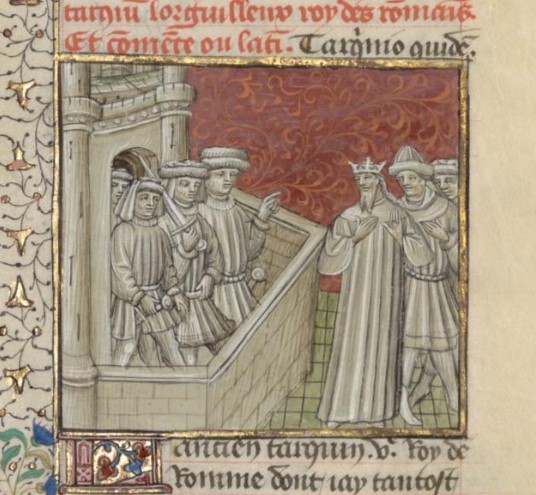 tarquĩ lorguilleux roy des romaĩs.
Et cõmẽce ou latĩ. Tarqinio quidẽ.
Lancien tarquin .v. Roy de
Romme dont iay tantost